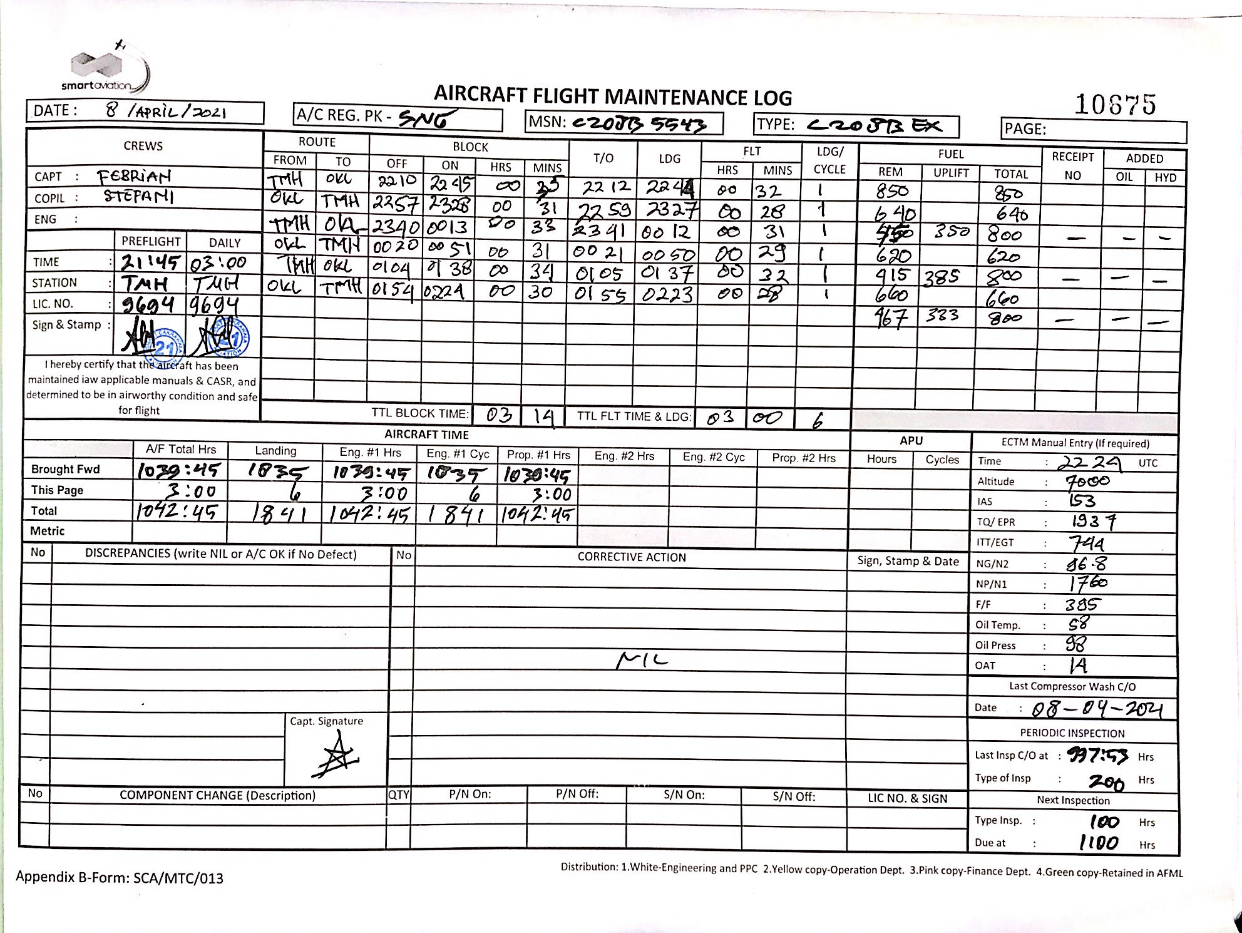 smartaviation
AIRCRAFT FLIGHT MAINTENANCE LOG
10675
DATE : 8 / APRIL / 2021
A/C REG. PK - SNG
MSN: C208B 5543
TYPE: C208B EX
PAGE:
CREWS ROUTE BLOCK T/O LDG FLT LDG/ CYCLE FUEL RECEIPT NO ADDED
FROM TO OFF ON HRS MINS HRS MINS REM UPLIFT TOTAL OIL HYD
CAPT : FEBRIAN
COPIL : STEFANI
ENG :
TMH OKL 2210 2245 00 35 2212 2244 00 32 1 850 850
OKL TMH 2257 2328 00 31 2259 2327 00 28 1 640 640
TMH OKL 2340 0013 00 33 2341 0012 00 31 1 450 350 800 — — —
OKL TMH 0020 0051 00 31 0021 0050 00 29 1 620 620
TMH OKL 0104 0138 00 34 0105 0137 00 32 1 415 385 800 — — —
OKL TMH 0154 0224 00 30 0155 0223 00 28 1 660 660
467 333 800 — — —
PREFLIGHT DAILY
TIME : 21:45 03:00
STATION : TMH TMH
LIC. NO. : 9694 9694
Sign & Stamp :
21 21
I hereby certify that the aircraft has been
maintained iaw applicable manuals & CASR, and
determined to be in airworthy condition and safe
for flight
TTL BLOCK TIME: 03 14 TTL FLT TIME & LDG: 03 00 6
AIRCRAFT TIME
A/F Total Hrs Landing Eng. #1 Hrs Eng. #1 Cyc Prop. #1 Hrs Eng. #2 Hrs Eng. #2 Cyc Prop. #2 Hrs
Brought Fwd 1039:45 1835 1039:45 1835 1039:45
This Page 3:00 6 3:00 6 3:00
Total 1042:45 1841 1042:45 1841 1042:45
Metric
APU
Hours Cycles
ECTM Manual Entry (If required)
Time : 2224 UTC
Altitude : 7000
IAS : 153
TQ/ EPR : 1937
ITT/EGT : 744
NG/N2 : 96.8
NP/N1 : 1760
F/F : 385
Oil Temp. : 58
Oil Press : 98
OAT : 14
Last Compressor Wash C/O
Date : 08-04-2021
PERIODIC INSPECTION
Last Insp C/O at : 997:53 Hrs
Type of Insp : 200 Hrs
Next Inspection
Type Insp. : 100 Hrs
Due at : 1100 Hrs
No DISCREPANCIES (write NIL or A/C OK if No Defect) No CORRECTIVE ACTION Sign, Stamp & Date
NIL
Capt. Signature
No COMPONENT CHANGE (Description) QTY P/N On: P/N Off: S/N On: S/N Off: LIC NO. & SIGN
Distribution: 1.White-Engineering and PPC 2.Yellow copy-Operation Dept. 3.Pink copy-Finance Dept. 4.Green copy-Retained in AFML
Appendix B-Form: SCA/MTC/013